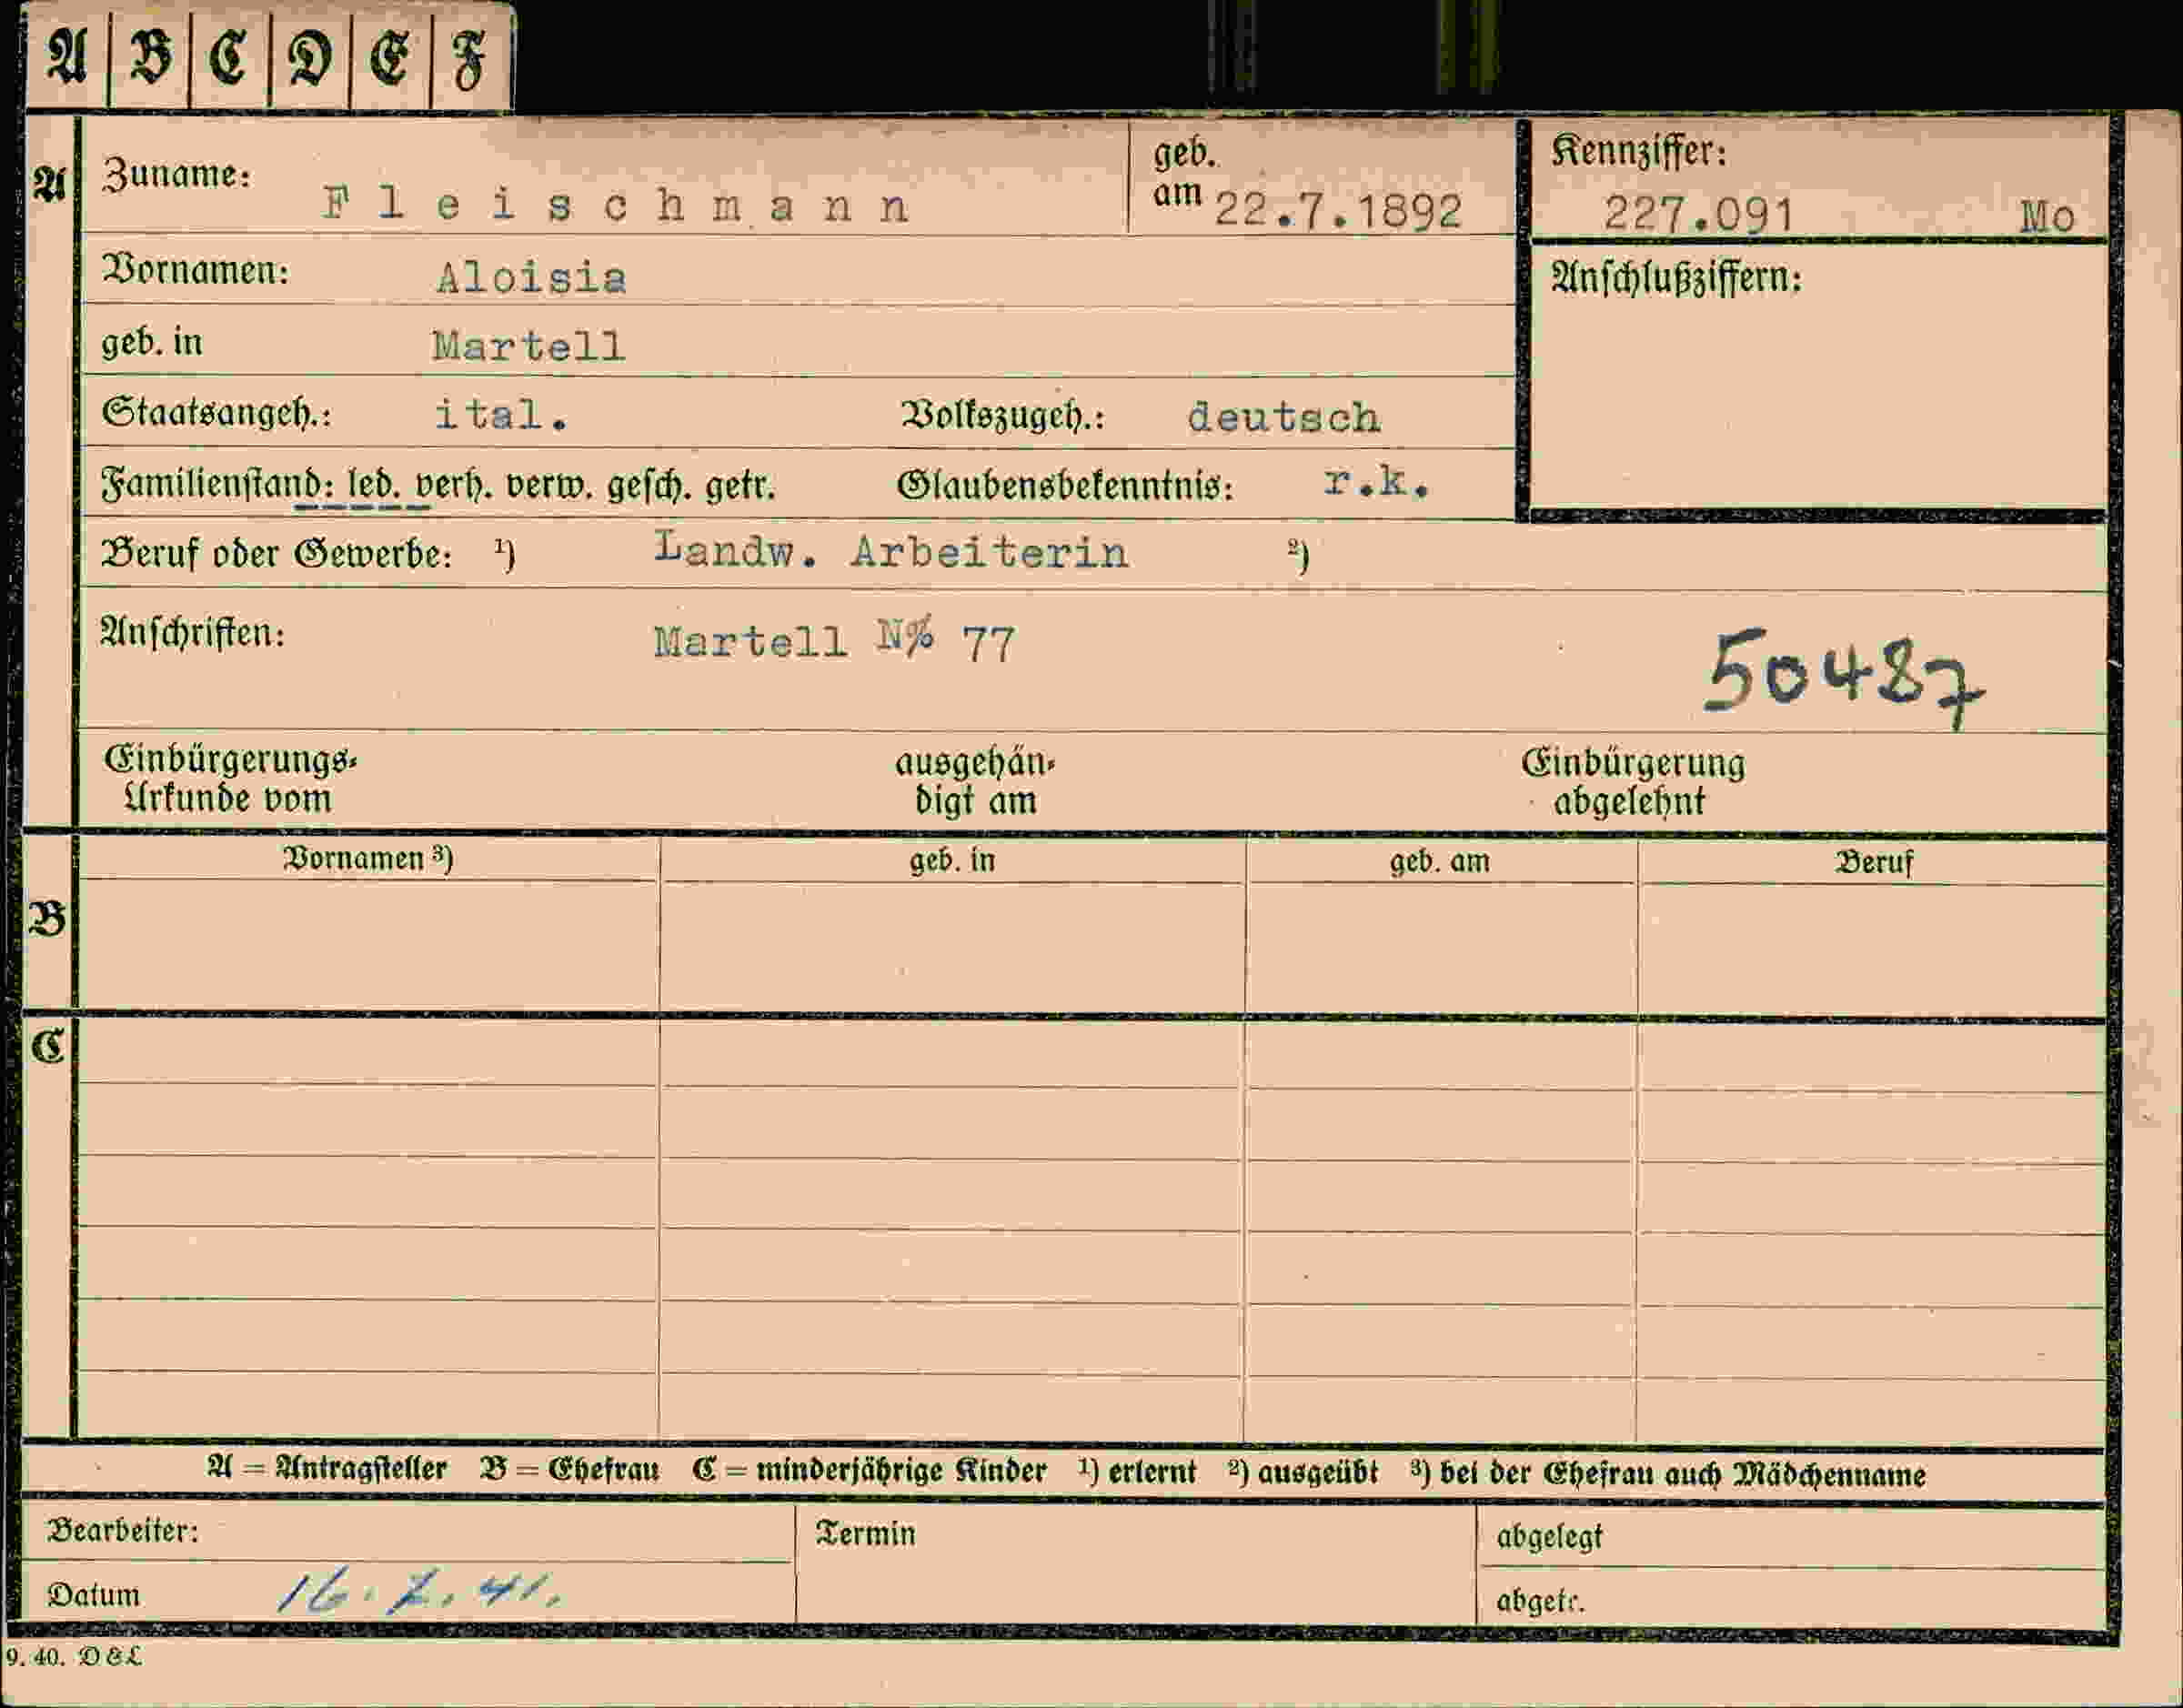 A B C D E F
A Zuname: Fleischmann geb. am 22.7.1892 Kennziffer: 227.091 Mo
Vornamen: Aloisia Anschlußziffern:
geb. in Martell
Staatsangeh.: ital. Volkszugeh.: deutsch
Familienstand: led. verh. verw. gesch. getr. Glaubensbekenntnis: r.k.
Beruf oder Gewerbe: ¹) Landw. Arbeiterin ²)
Anschriften: Martell N% 77
50487
Einbürgerungs- ausgehän- Einbürgerung
Urkunde vom digt am abgelehnt
Vornamen ³) geb. in geb. am Beruf
B
C
A = Antragsteller B = Ehefrau C = minderjährige Kinder ¹) erlernt ²) ausgeübt ³) bei der Ehefrau auch Mädchenname
Bearbeiter: Termin abgelegt
Datum 16.7.41. abgetr.
9. 40. D&L